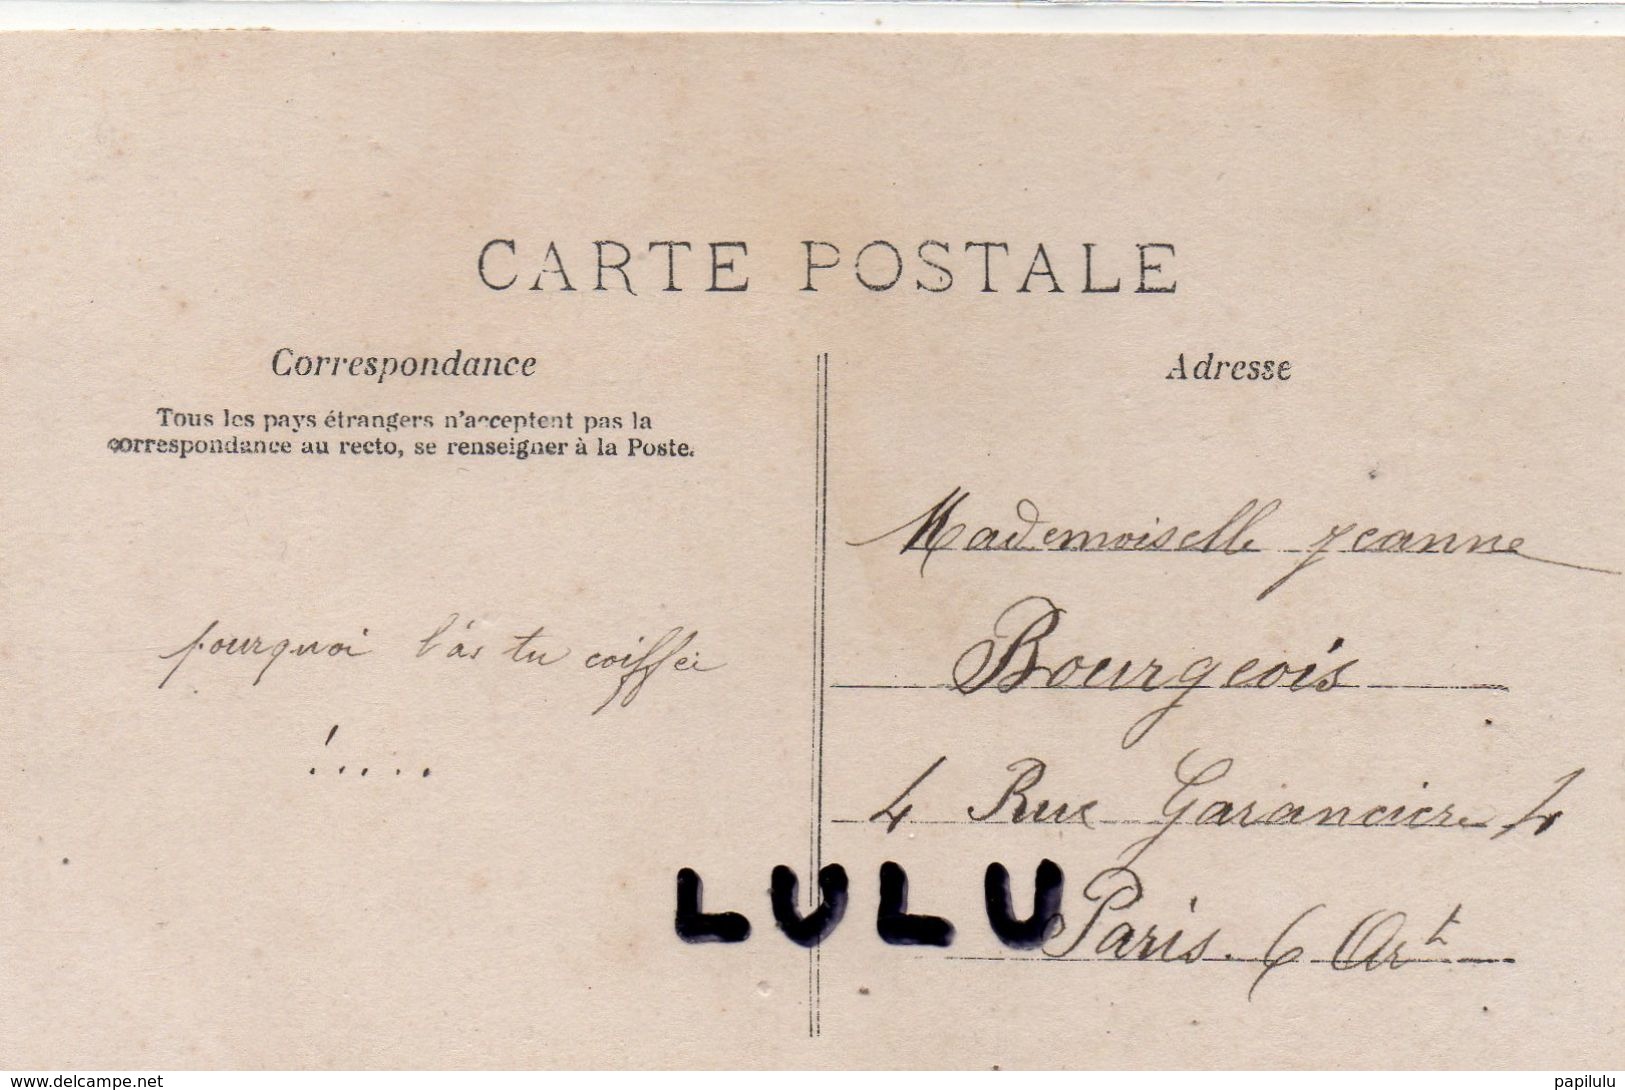 CARTE POSTALE
Correspondance
Tous les pays étrangers n'acceptent pas la
correspondance au recto, se renseigner à la Poste.
pourquoi l'as tu coiffei
!.....
Adresse
Mademoiselle Jeanne
Bourgeois
4 Rue Garanciere 4
Paris. 6 Art
LULU
www.delcampe.net
papilulu